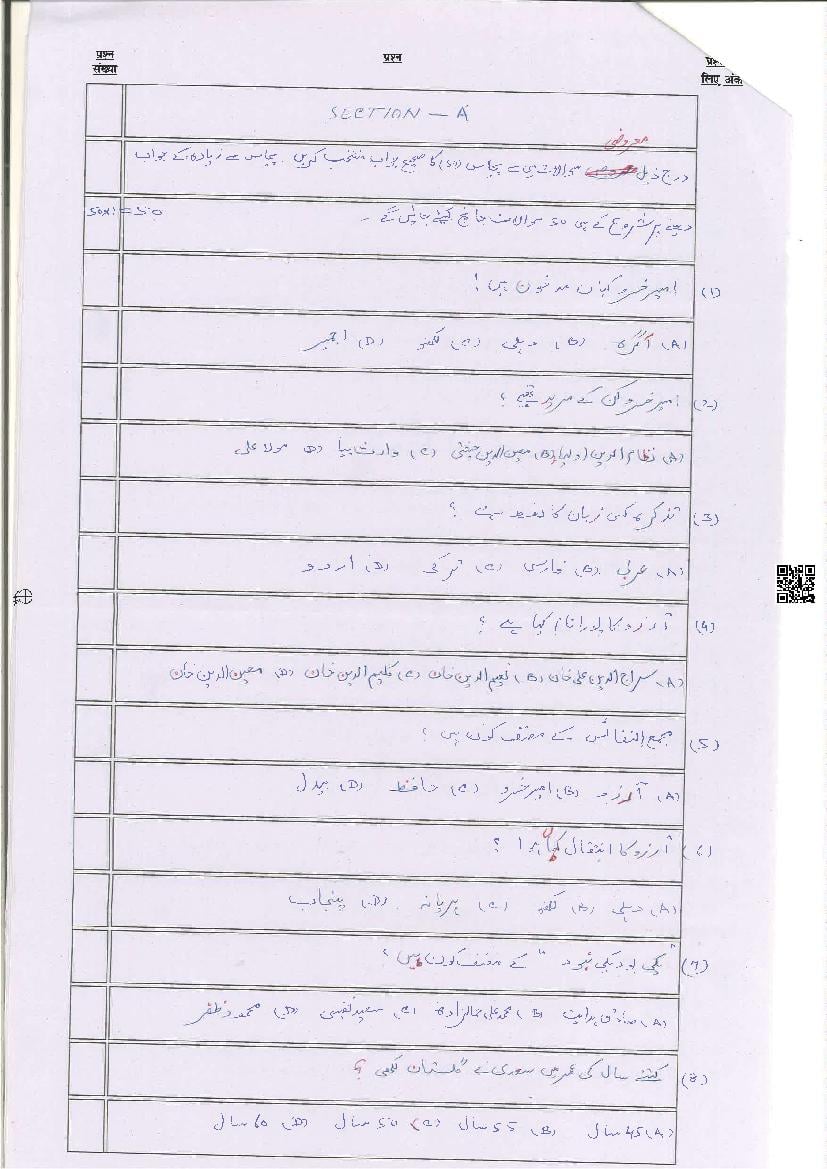 प्रश्न संख्या
प्रश्न
लिए अंक
SECTION - A
معروضی
درج ذیل سوالات میں سے پچاس (50) کا صحیح جواب منتخب کریں۔ پچاس سے زیادہ کے جواب
دینے پر شروع کے ہی 50 سوالات جانچ کیئے جائیں گے۔ 50x1=50
(1) امیر خسرو کہاں مدفون ہیں؟
(A) آگرہ (B) دہلی (C) لکھنؤ (D) اجمیر
(2) امیر خسرو کن کے مرید تھے؟
(A) نظام الدین اولیا (B) معین الدین چشتی (C) وارث پیا (D) مولا علی
(3) تذکرہ کس زبان کا لفظ ہے؟
(A) عربی (B) فارسی (C) ترکی (D) اردو
(4) آرزو کا پورا نام کیا ہے؟
(A) سراج الدین علی خان (B) نعیم الدین خان (C) کلیم الدین خان (D) معین الدین خان
(5) مجمع النفائس کے مصنف کون ہیں؟
(A) آرزو (B) امیر خسرو (C) حافظ (D) بیدل
(6) آرزو کا انتقال کہاں ہوا؟
(A) دہلی (B) لکھنؤ (C) ہریانہ (D) پنجاب
(7) "یکی بود یکی نبود" کے مصنف کون ہیں؟
(A) صادق ہدایت (B) محمد علی جمالزادہ (C) سعید نفیسی (D) محمود ظفر
(8) کتنے سال کی عمر میں سعدی نے "گلستان لکھی؟
(A) 45 سال (B) 55 سال (C) 50 سال (D) 60 سال